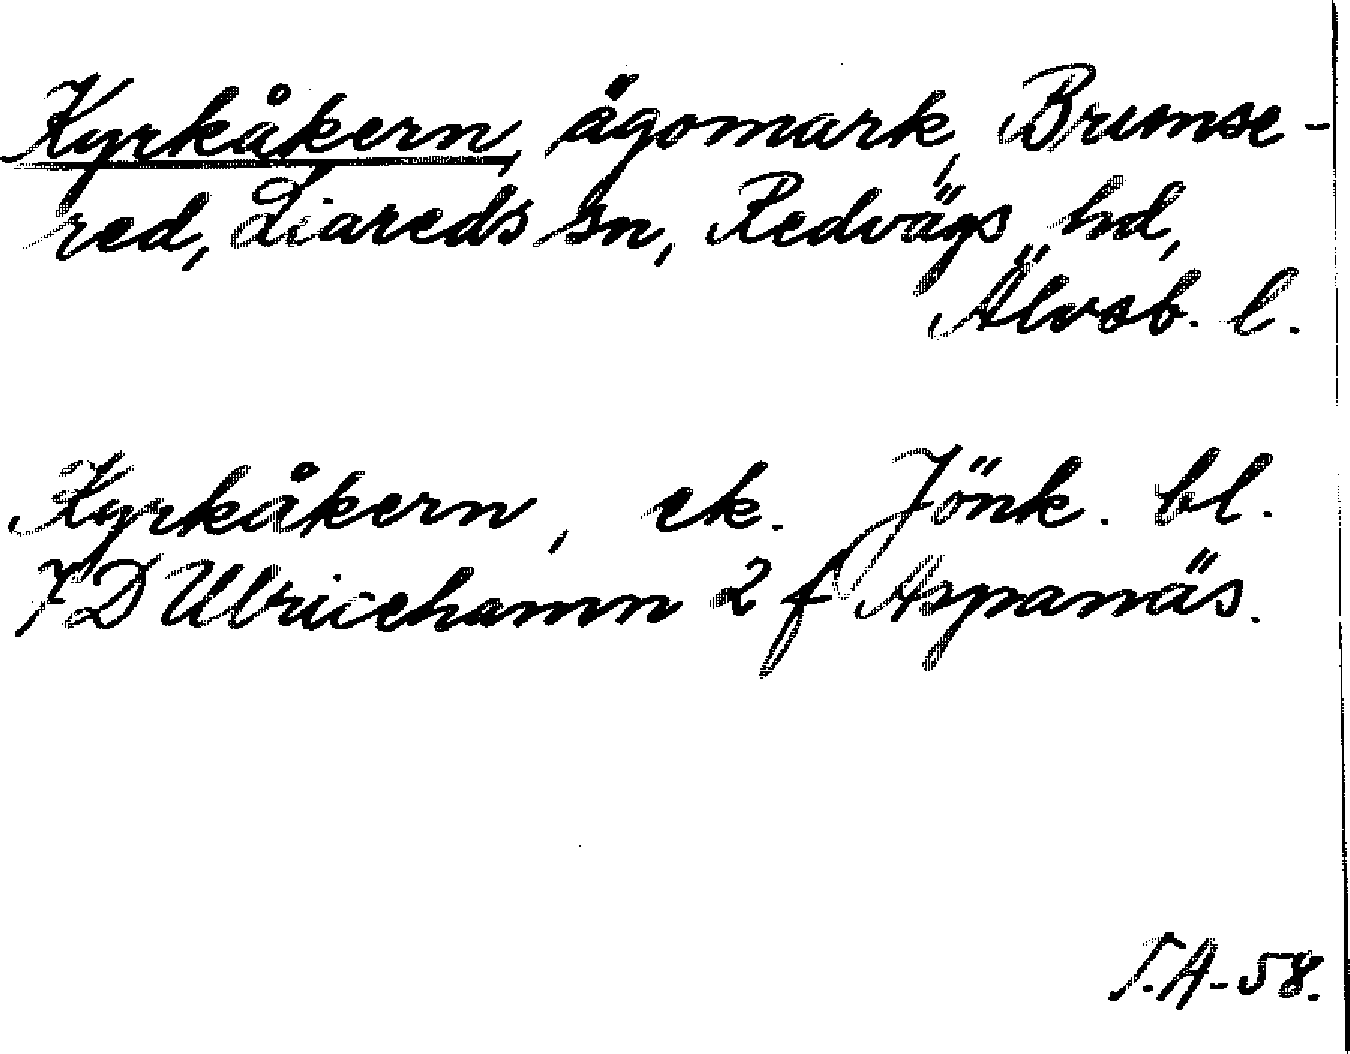 Kyrkåkern, ägomark, Brumse-
red, Liareds sn, Redvägs hd,
Älvsb. l.
Kyrkåkern, ek. Jönk. bl.
7 D Ulricehamn 2 f Aspanäs.
T.A-58.